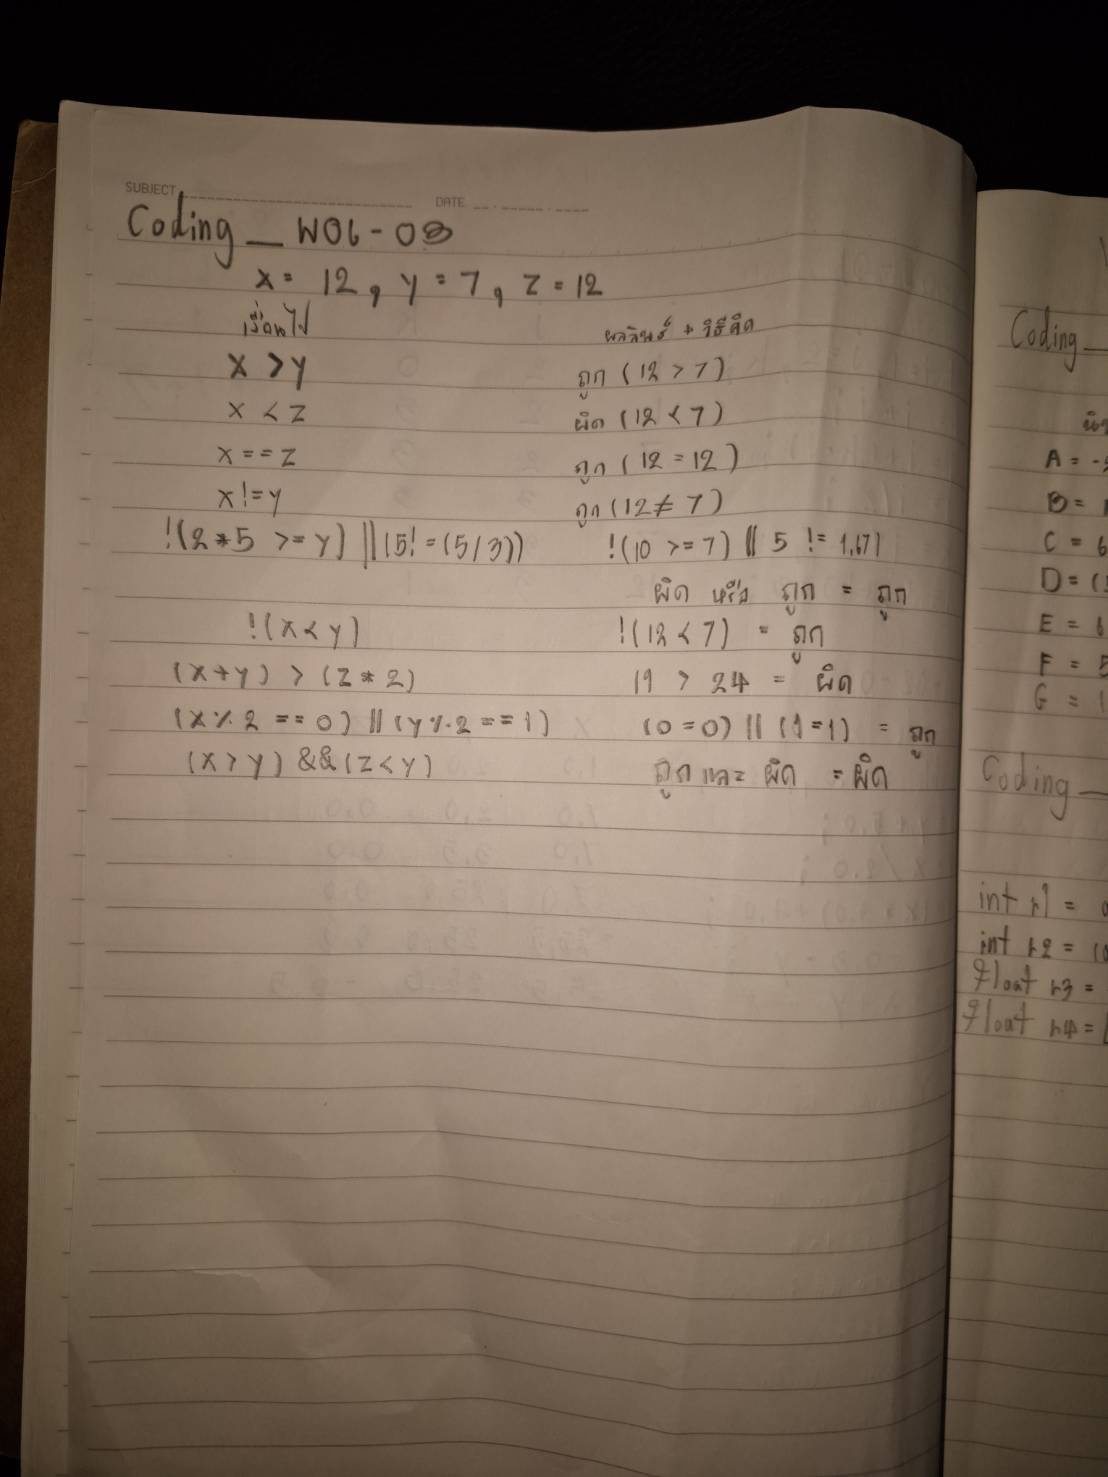 SUBJECT DATE
Coding_W06-03
x = 12, y = 7, z = 12
เงื่อนไข ผลลัพธ์ + วิธีคิด
x > y ถูก (12 > 7)
x < z ผิด (12 < 7)
x == z ถูก (12 = 12)
x != y ถูก (12 ≠ 7)
!(2*5 >= y) || (5! = (5/3)) !(10 >= 7) || 5 != 1,67)
ผิด หรือ ถูก = ถูก
!(x < y) !(12 < 7) = ถูก
(x+y) > (z*2) 19 > 24 = ผิด
(x % 2 == 0) || (y % 2 == 1) (0=0) || (1=1) = ถูก
(x > y) && (z < y) ถูก และ ผิด = ผิด
Coding_
A = -
B =
C = 6
D = (
E = 6
F = 5
G = 1
Coding_
int r1 =
int r2 = 10
float r3 =
float r4 =